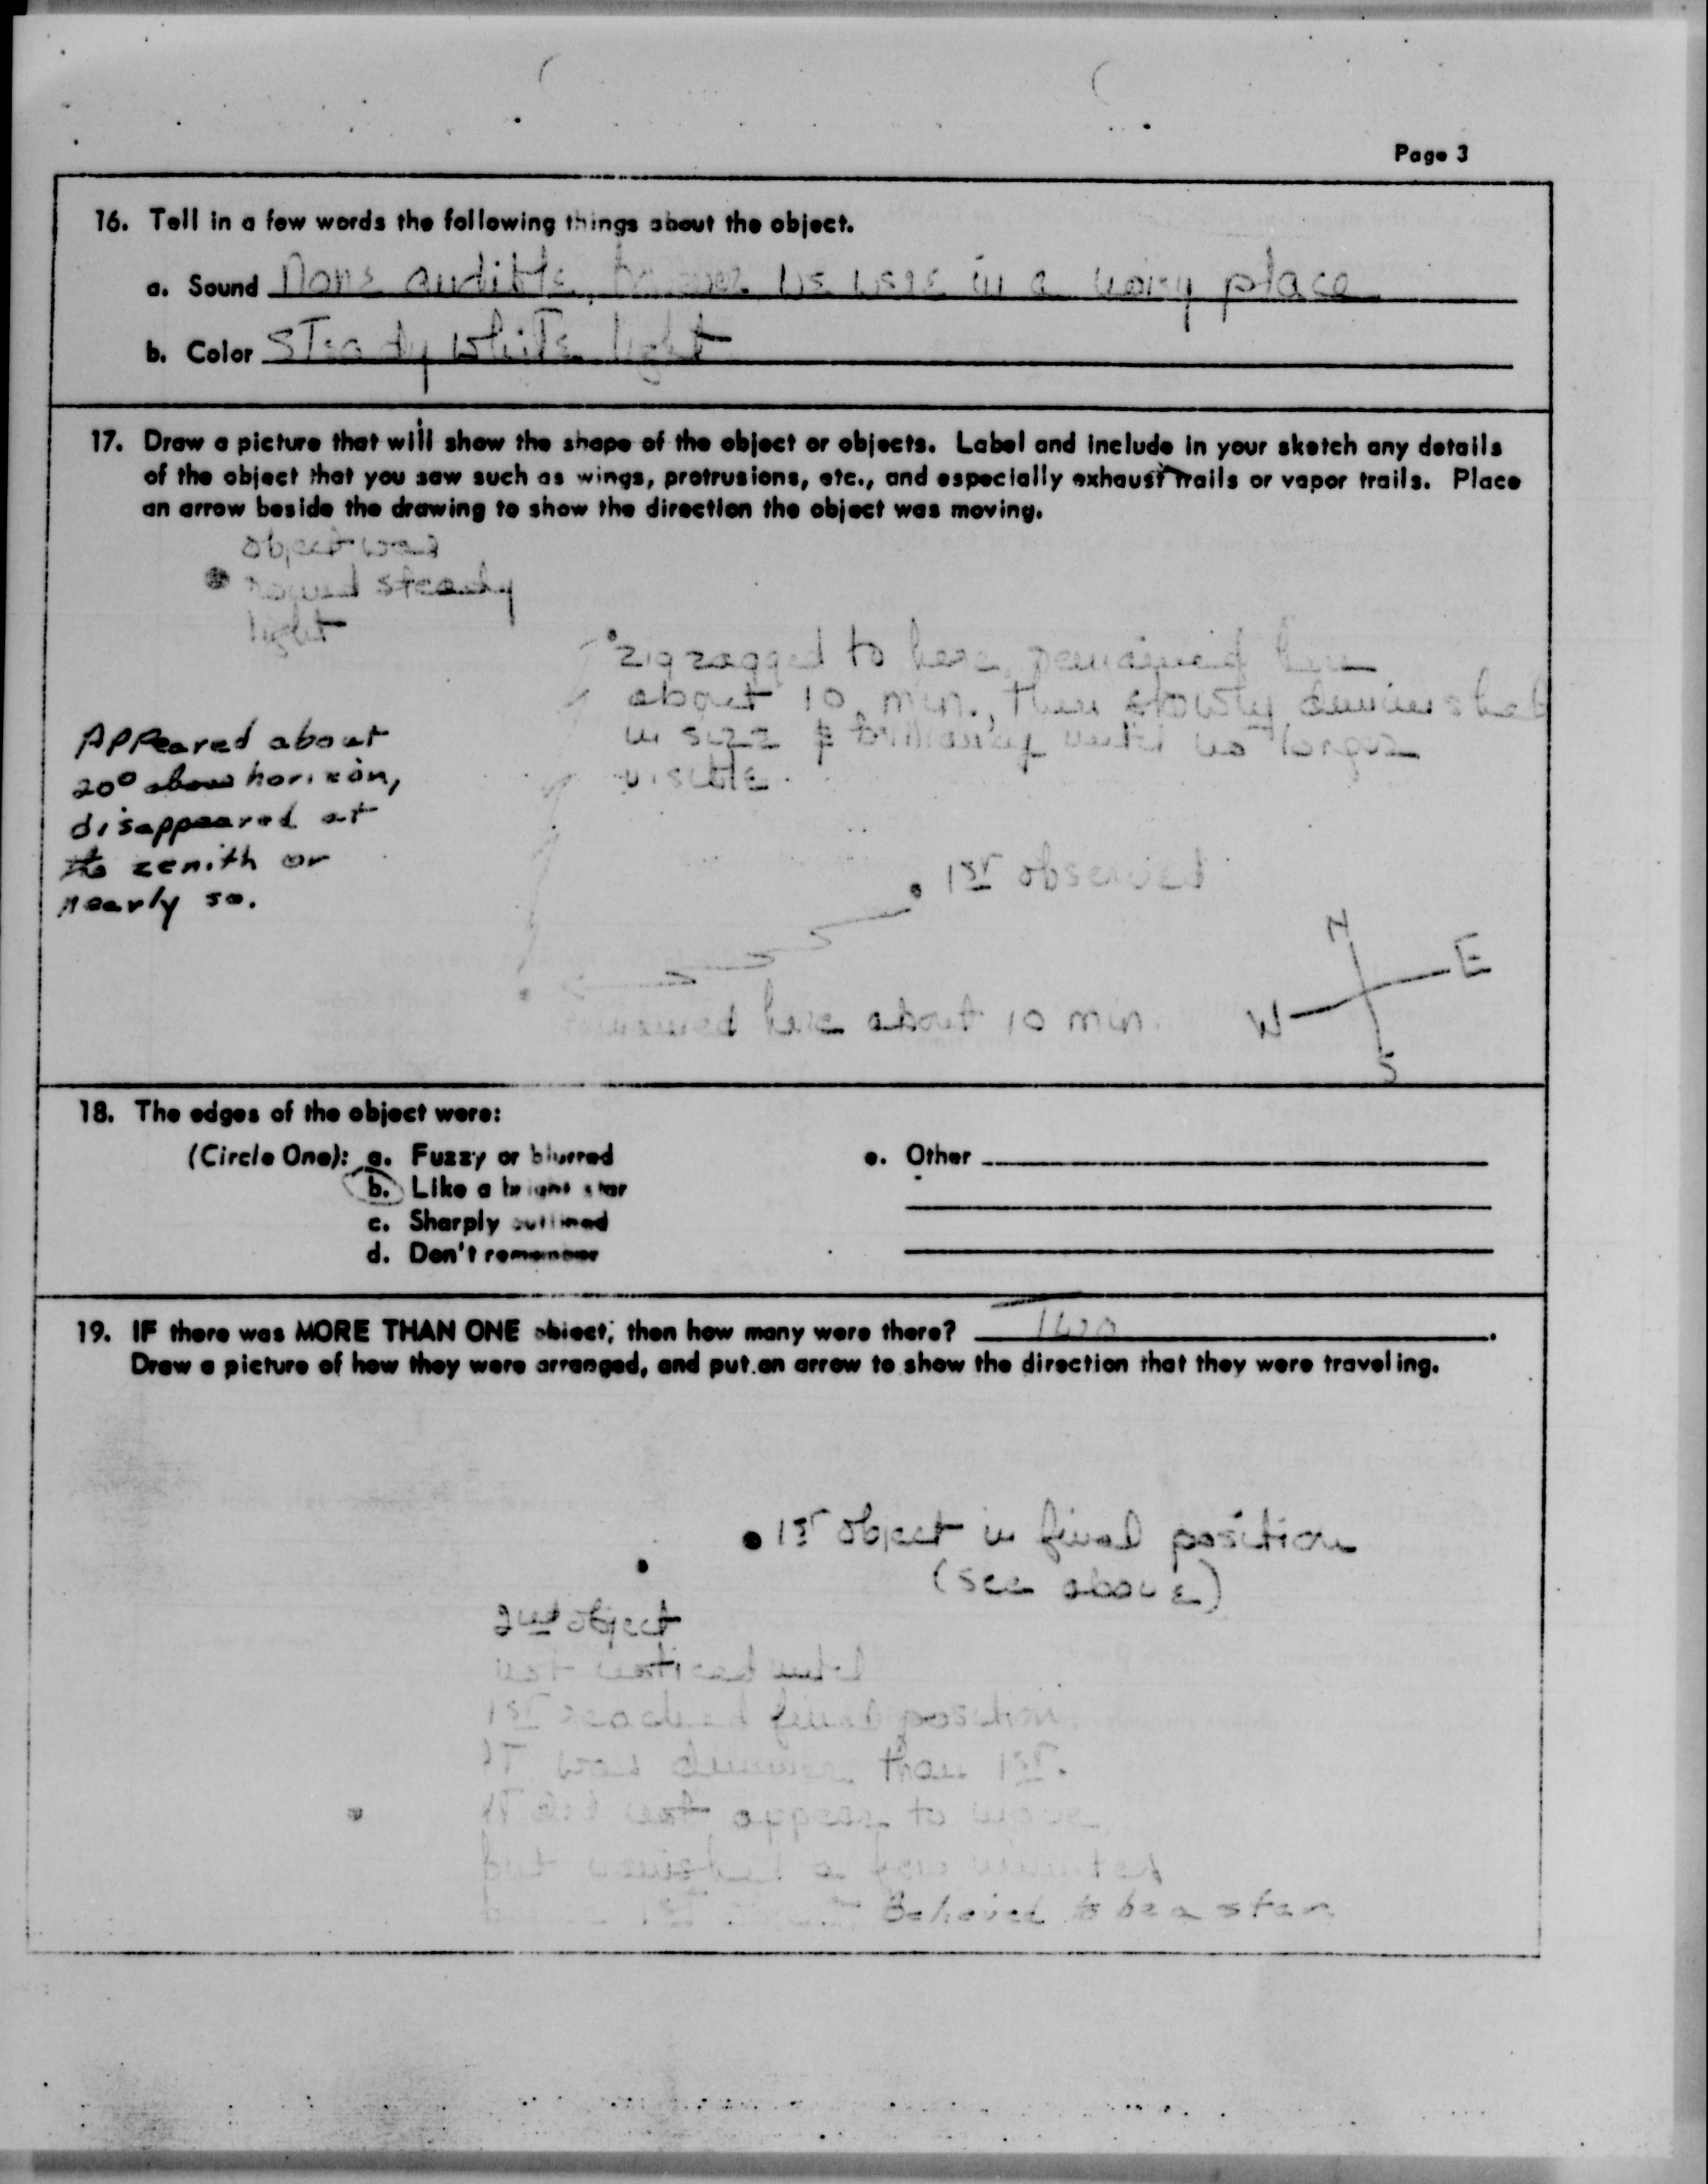 Page 3
16. Tell in a few words the following things about the object.
a. Sound None audible, however we were in a noisy place
b. Color Steady white light
17. Draw a picture that will show the shape of the object or objects. Label and include in your sketch any details
of the object that you saw such as wings, protrusions, etc., and especially exhaust trails or vapor trails. Place
an arrow beside the drawing to show the direction the object was moving.
object was
round steady
light
zigzagged to here, remained here
about 10 min., then slowly diminished
in size & brilliancy until no longer
visible.
Appeared about
20° above horizon,
disappeared at
the zenith or
nearly so.
1st observed
N
E
W
S
remained here about 10 min.
18. The edges of the object were:
(Circle One): a. Fuzzy or blurred
b. Like a bright star
c. Sharply outlined
d. Don't remember
e. Other
19. IF there was MORE THAN ONE object, then how many were there? Two
Draw a picture of how they were arranged, and put an arrow to show the direction that they were traveling.
1st object in final position
(see above)
2nd object
not noticed until
1st reached final position
It was dimmer than 1st.
It did not appear to move
but
1st Believed to be a star